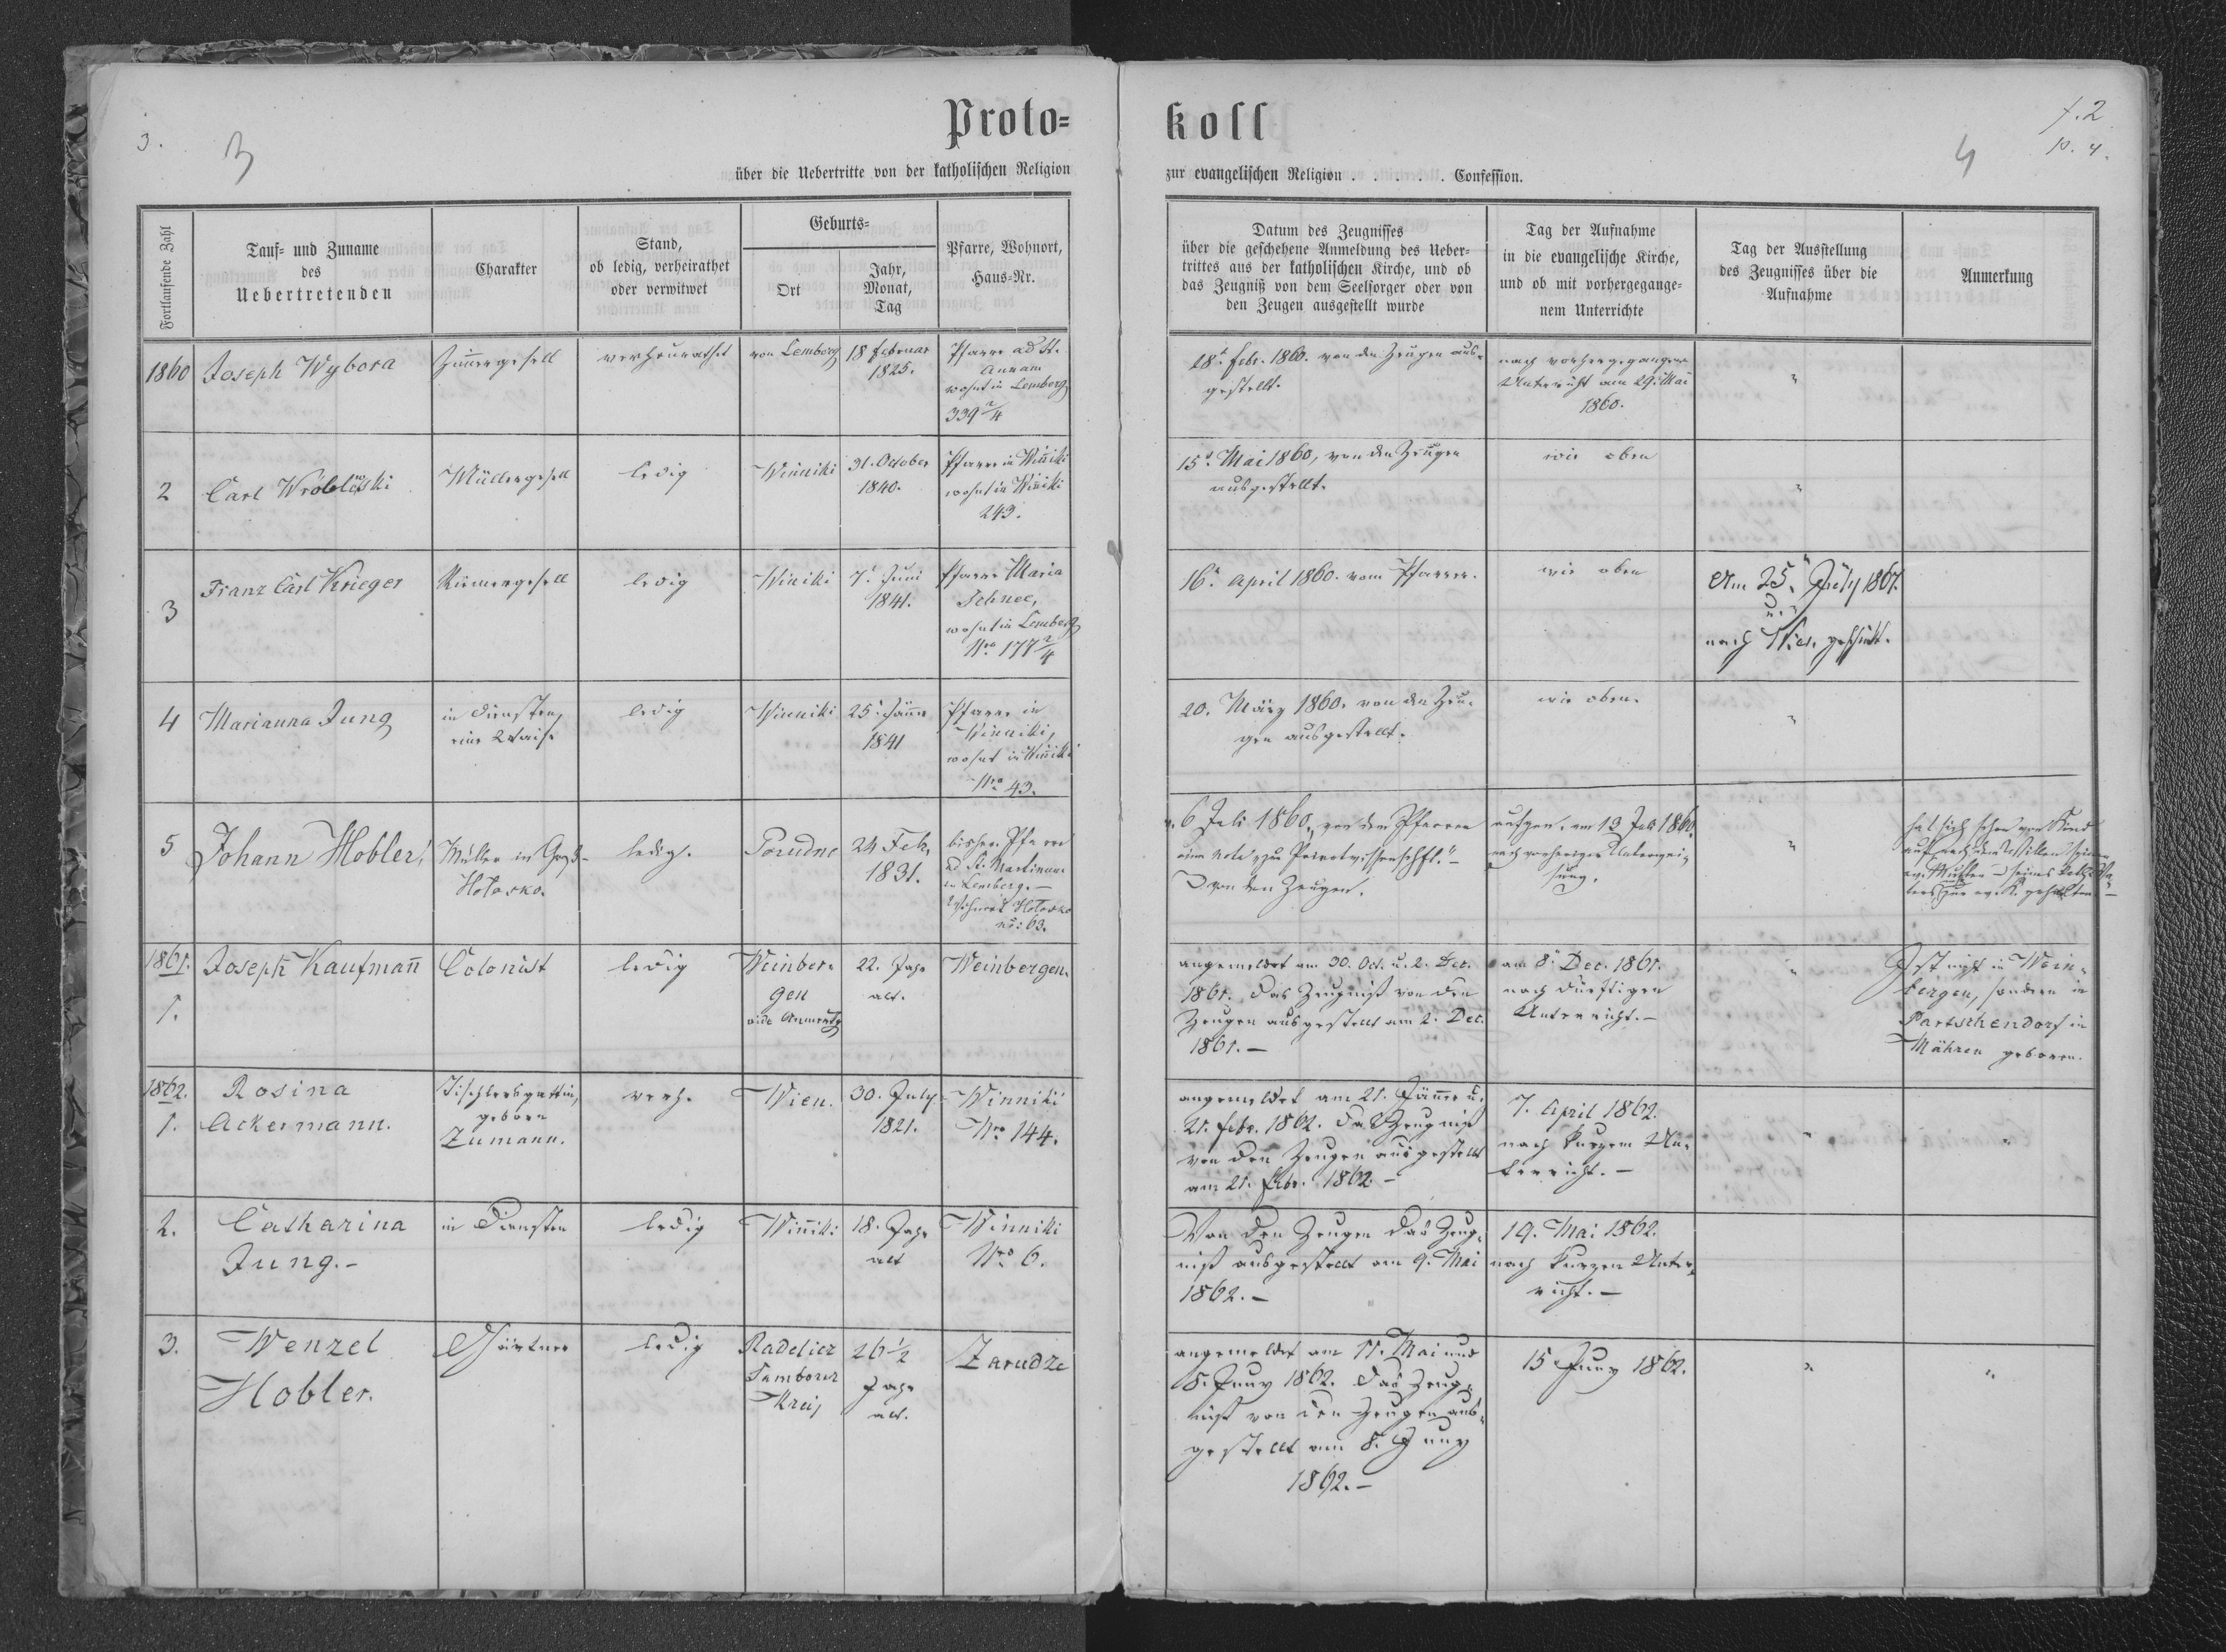 Proto=
koll
3.
3
4
f. 2
p. 4.
über die Uebertritte von der katholischen Religion
zur evangelischen Religion . . . . . Confession.
Fortlaufende Zahl
Tauf= und Zuname
des
Uebertretenden
Charakter
Stand,
ob ledig, verheirathet
oder verwitwet
Geburts=
Ort
Jahr,
Monat,
Tag
Pfarre, Wohnort,
Haus=Nr.
Datum des Zeugnisses
über die geschehene Anmeldung des Ueber=
trittes aus der katholischen Kirche, und ob
das Zeugniß von dem Seelsorger oder von
den Zeugen ausgestellt wurde
Tag der Aufnahme
in die evangelische Kirche,
und ob mit vorhergegange=
nem Unterrichte
Tag der Ausstellung
des Zeugnisses über die
Aufnahme
Anmerkung
1860
Joseph Wybora
Zimmergesell
verheurathet
von Lemberg
18 Februar
1825.
Pfarre ad St.
Annam
wohnt in Lemberg
339 2/4
28t. Febr. 1860. von den Zeugen aus=
gestellt.
nach vorhergegangen
Unterricht am 29t. Mai
1860.
"
2
Carl Wroblewski
Müllergesell
ledig
Winniki
31. October
1840.
Pfarre in Winniki
wohnt in Winiki
243.
15t. Mai 1860, von den Zeugen
ausgestellt.
wie oben
"
3
Franz Carl Krieger
Riemergesell
ledig
Winiki
7t. Juni
1841.
Pfarre Maria
Schnee,
wohnt in Lemberg
Nro 177 2/4
16t. April 1860. vom Pfarrer.
wie oben
Am 25. July 1861.
u.
nach Wien geschickt.
4
Marianna Jung
in Diensten,
eine Waise
ledig
Winniki
25t. Jänner
1841
Pfarre in
Winniki,
wohnt in Winiki
Nro 43.
20. März 1860. von den Zeu=
gen ausgestellt.
wie oben.
"
5
Johann Hobler,
Müller in
Hołosko.
ledig.
Porudno
24 Feb.
1831.
bisher. Pfarre
ad St. Martinum
in Lemberg. —
Wohnort Hołosko
nr: 63.
6 Juli 1860, von dem Pfarrer
eine Note "zur Privatwissenschft." —
von den Zeugen.
aufgen. am 13 Juli 1860.
nach vorheriger Unterwei=
sung.
"
hat sich schon von Kind
auf nach dem Willen seiner
ev. Mutter
zur ev. K. gehalten —
1861.
1.
Joseph Kaufmañ
Colonist
ledig
Weinber=
gen
vide Anmerkg
22. Jahr
alt.
Weinbergen.
angemeldet am 30. Oct. u. 2. Dec.
1861. Das Zeugniß von den
Zeugen ausgestellt am 2. Dec.
1861. —
am 8t. Dec. 1861.
nach dürftigen
Unterricht. —
"
Ist nicht in Wein=
bergen, sondern in
Partschendorf in
Mähren geboren.
1862.
1.
Rosina
Ackermann.
Tischlersgattin,
geborn
Zumann.
verh.
Wien.
30. July
1821.
Winniki
Nro 144.
angemeldet am 21. Jänner u.
21. Febr. 1862. Das Zeugniß
von den Zeugen ausgestellt
am 21. Febr. 1862. —
7. April 1862.
nach kurzem Un=
terricht. —
"
"
2.
Catharina
Jung. -
in Diensten
ledig
Winniki
18. Jahr
alt
Winniki
Nro 6.
Von den Zeugen das Zeug=
niß ausgestellt am 9. Mai
1862. —
19. Mai 1862.
nach kurzen Unter=
richt. —
3.
Wenzel
Hobler.
Gärtner
ledig
Radelicz
Samborer
Kreis
26 1/2
Jahr
alt.
Zarudze
angemeldet am 11. Mai und
8. Juny 1862. Das Zeug=
niß von den Zeugen aus=
gestellt am 8. Juny
1862. —
15 Juny 1862.
"
"